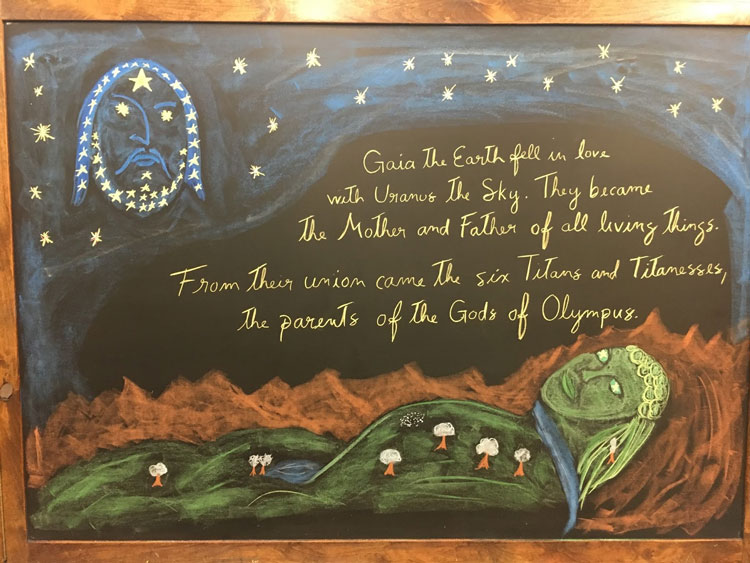 Gaia the Earth fell in love
with Uranus the Sky. They became
the Mother and Father of all living things.
From their union came the six Titans and Titanesses,
the parents of the Gods of Olympus.